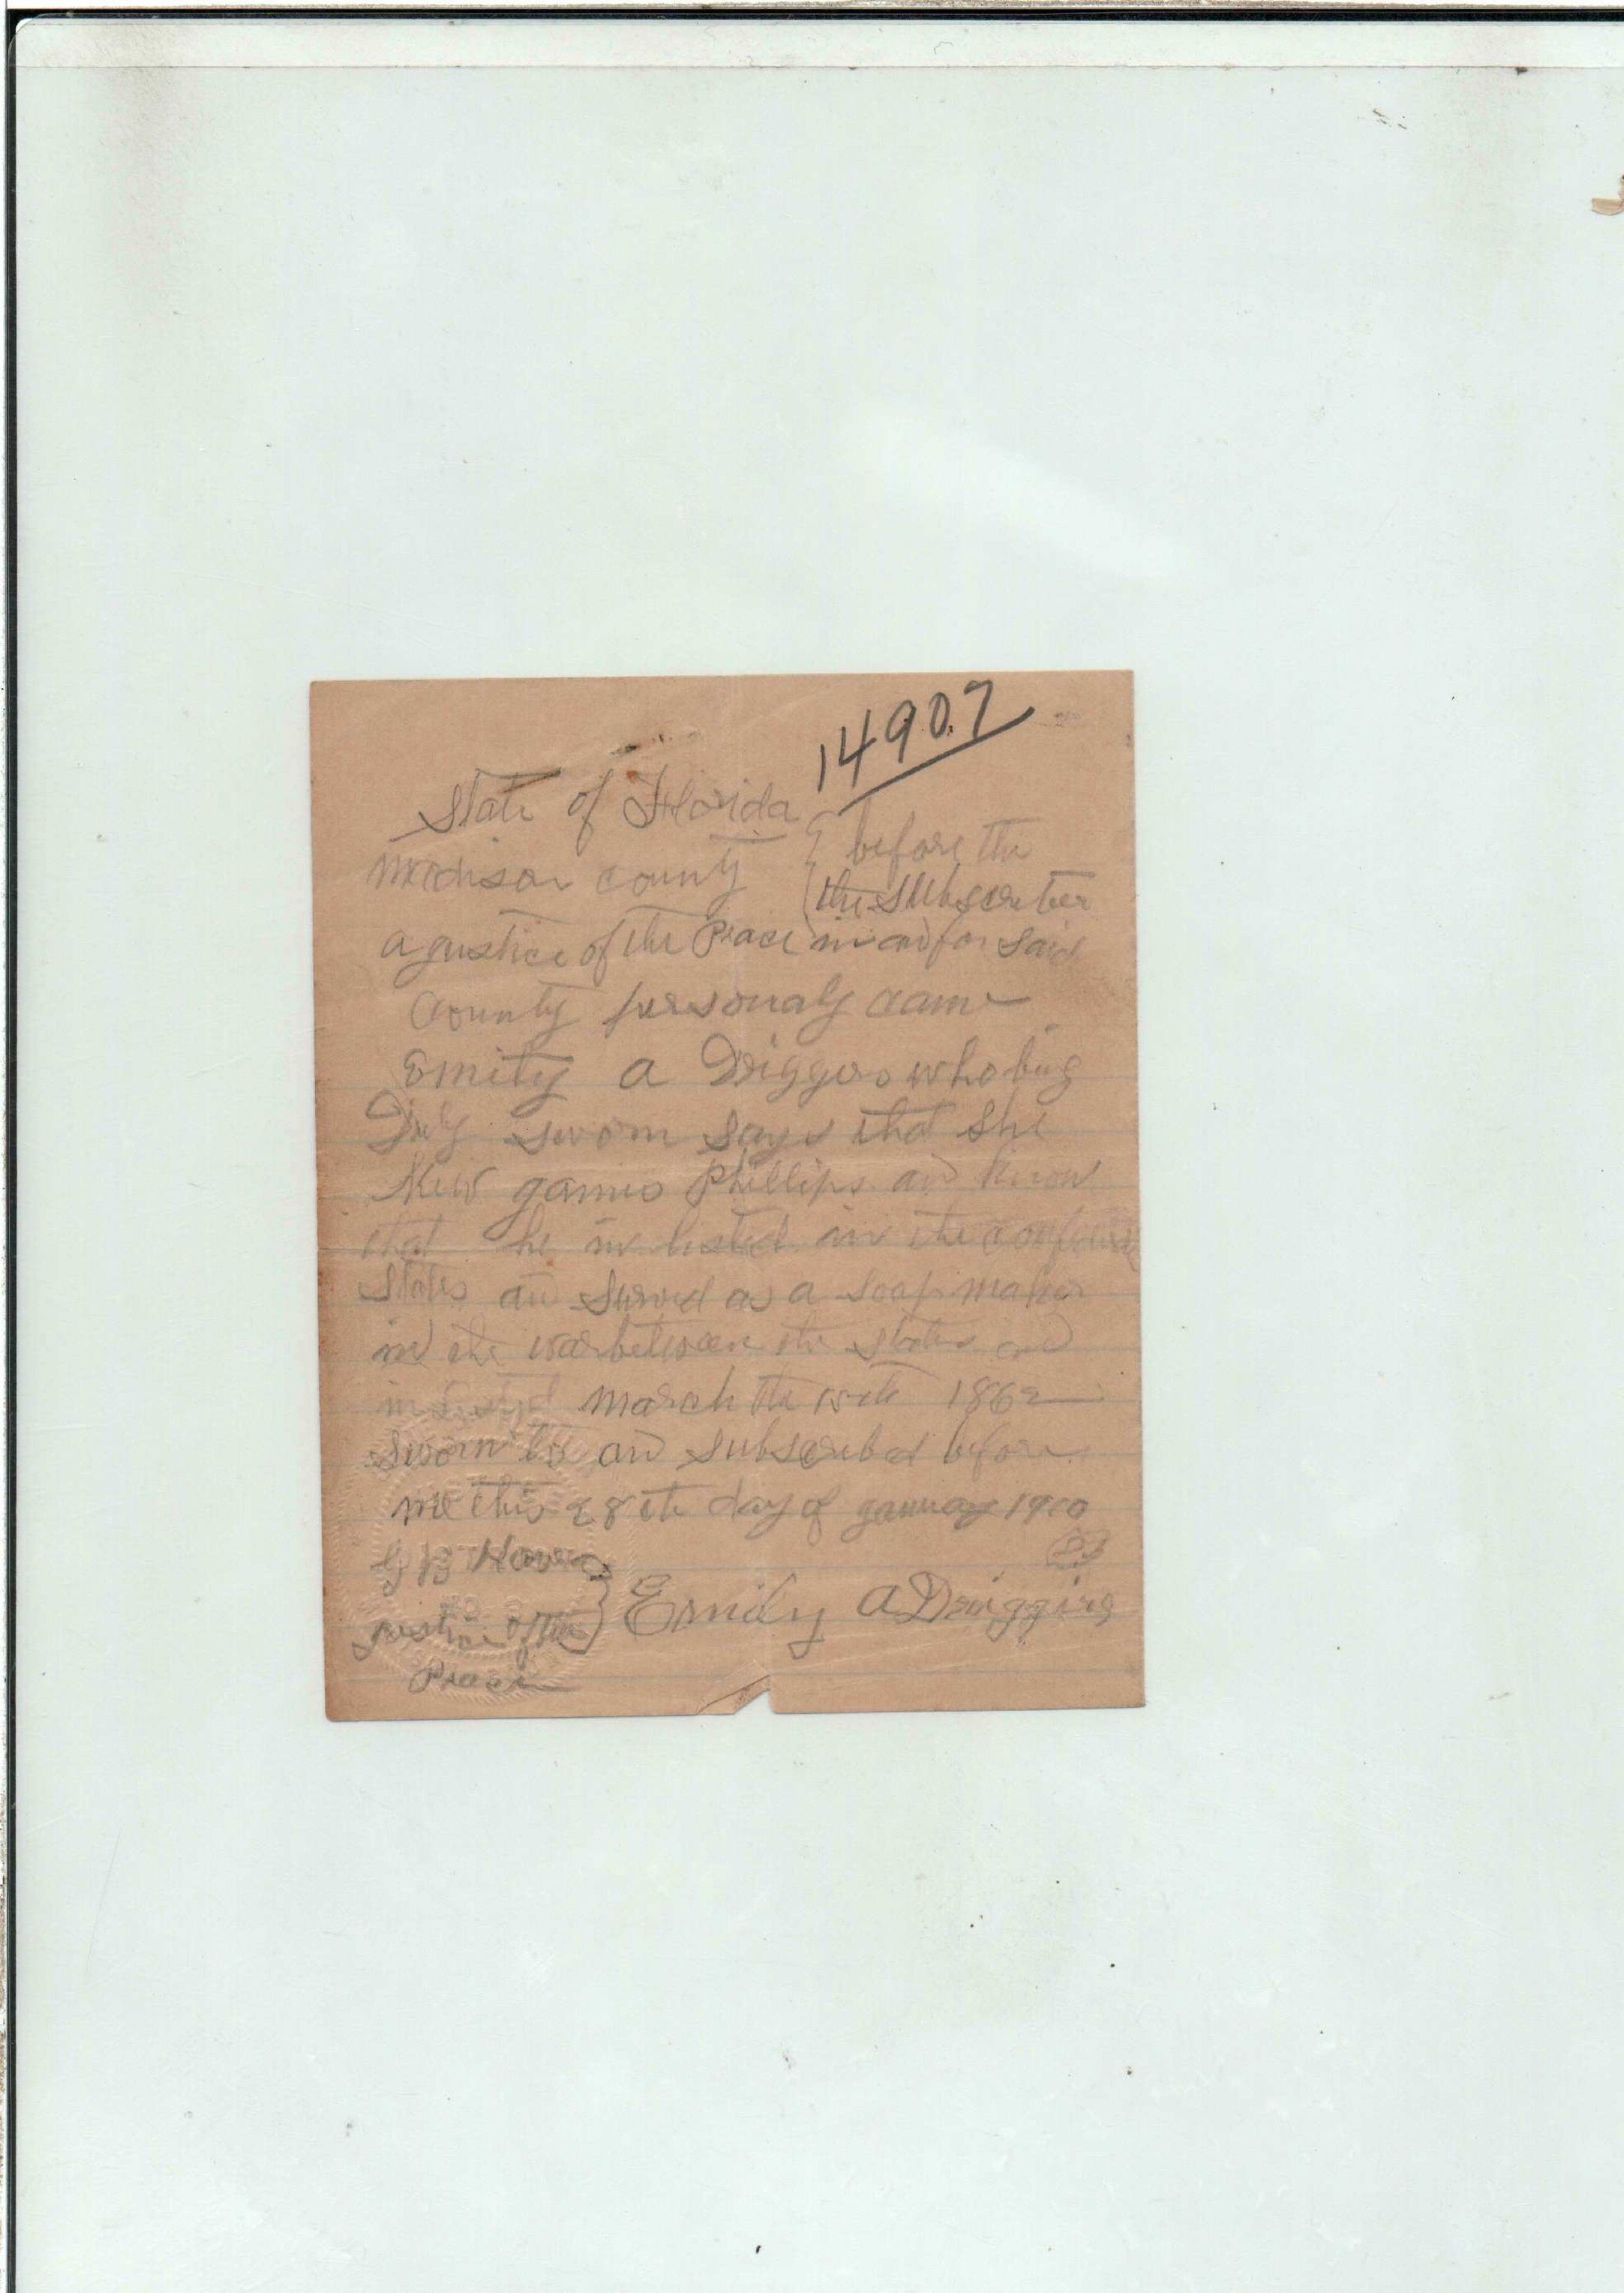 14907
State of Florida
Madison county } before the
the Subscriber
a gustice of the Peace in and for Said
County personaly came
Emily a Driggers who bing
Duly sworn says that She
Knew games Phillips and Know
that he in listed in the confederate
States and Served as a Soap maker
in the war between the states and
in listed march the 1862
Sworn to and Subscribed before
me this 28th day of january 1910
justice of the } Emily A Driggers
Peace